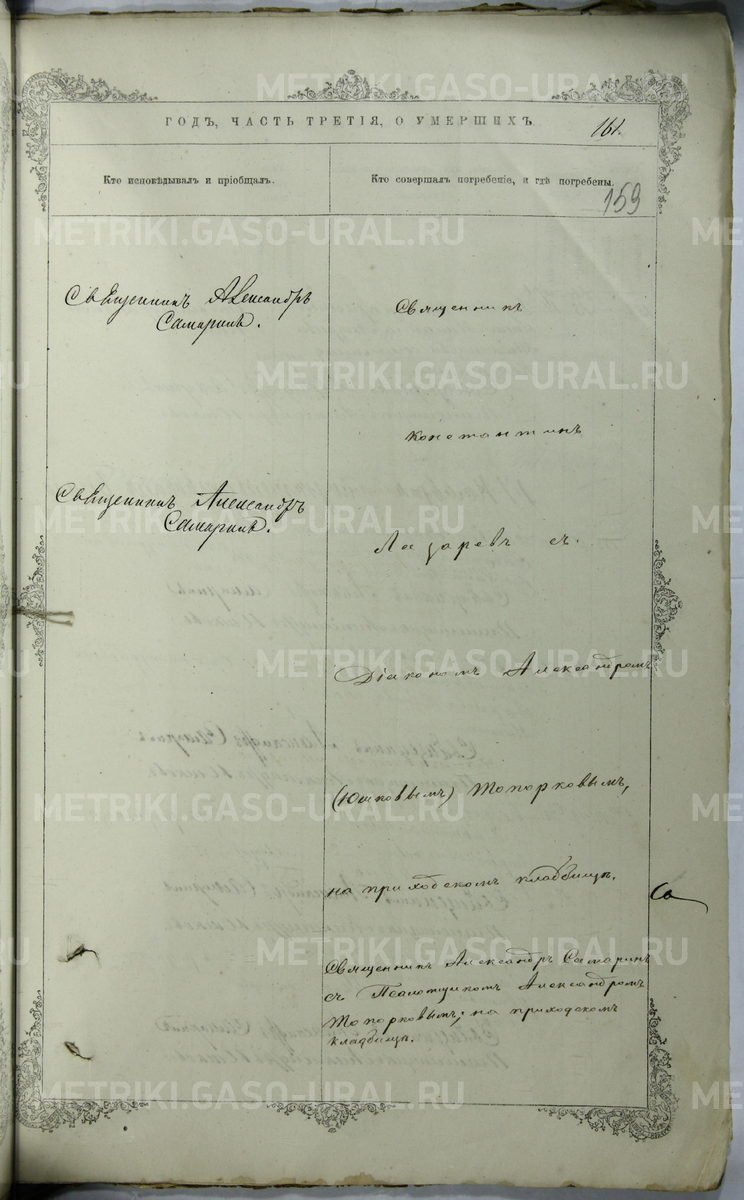 ГОДЪ, ЧАСТЬ ТРЕТІЯ, О УМЕРШИХЪ
161.
Кто исповѣдывалъ и пріобщалъ.
Кто совершалъ погребеніе, и гдѣ погребены.
159
Священникъ Александръ
Самаринъ.
Священникъ Александръ
Самаринъ.
Священникъ
Константинъ
Лазаревъ съ.
Діакономъ Александромъ
(Юшковымъ) Топорковымъ,
на приходскомъ кладбищѣ.
Са
Священникъ Александръ Самаринъ
съ Псаломщикомъ Александромъ
Топорковымъ, на приходскомъ
кладбищѣ.
METRIKI.GASO-URAL.RU